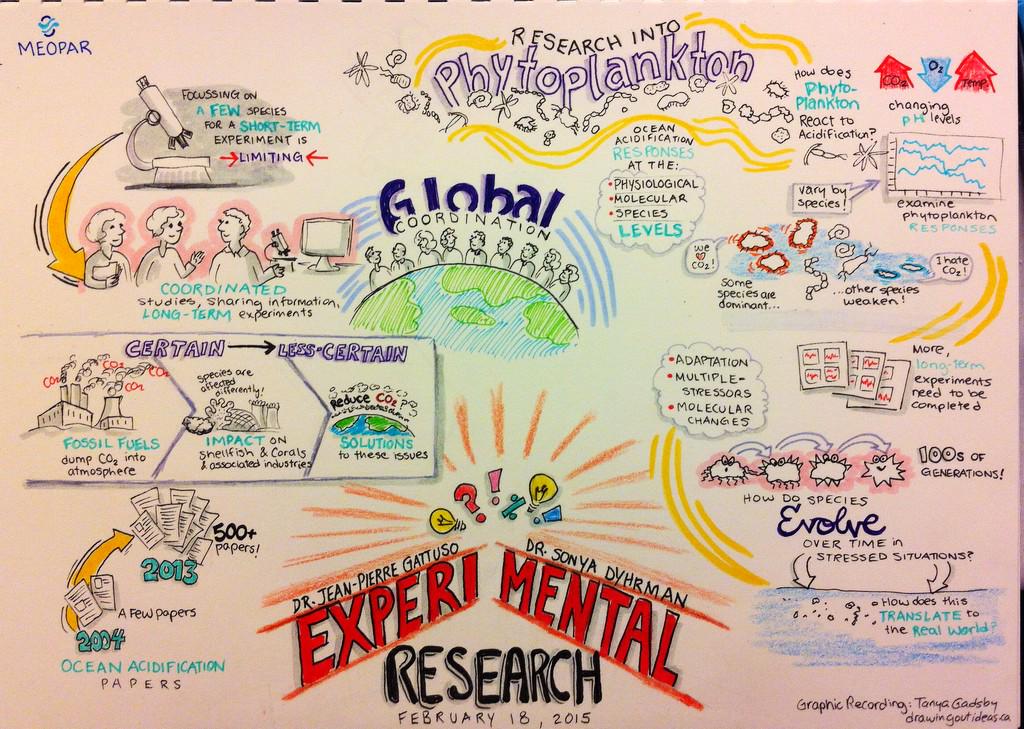 MEOPAR
RESEARCH INTO
Phytoplankton
FOCUSSING ON
A FEW SPECIES
FOR A SHORT-TERM
EXPERIMENT IS
LIMITING
COORDINATED
studies, sharing information,
LONG-TERM experiments
Global
COORDINATION
OCEAN
ACIDIFICATION
RESPONSES
AT THE:
• PHYSIOLOGICAL
• MOLECULAR
• SPECIES
LEVELS
How does
Phyto-
Plankton
React to
Acidification?
CO2
O2
Temp.
changing
pH levels
vary by
species!
examine
phytoplankton
RESPONSES
we
CO2!
I hate
CO2!
Some
species are
dominant...
...other species
weaken!
CERTAIN
LESS-CERTAIN
CO2
CO2
CO2
CO2
FOSSIL FUELS
dump CO2 into
atmosphere
Species are
affected
differently!
IMPACT on
Shellfish & Corals
& associated industries
Reduce CO2?
SOLUTIONS
to these issues
• ADAPTATION
• MULTIPLE-
STRESSORS
• MOLECULAR
CHANGES
More,
long-term
experiments
need to be
completed
100s OF
GENERATIONS!
HOW DO SPECIES
Evolve
OVER TIME in
STRESSED SITUATIONS?
How does this
TRANSLATE to
the Real World?
500+
papers!
2013
A Few papers
2004
OCEAN ACIDIFICATION
PAPERS
? ! %
DR. JEAN-PIERRE GATTUSO
DR. SONYA DYHRMAN
EXPERIMENTAL
RESEARCH
FEBRUARY 18, 2015
Graphic Recording: Tanya Gadsby
drawingoutideas.ca